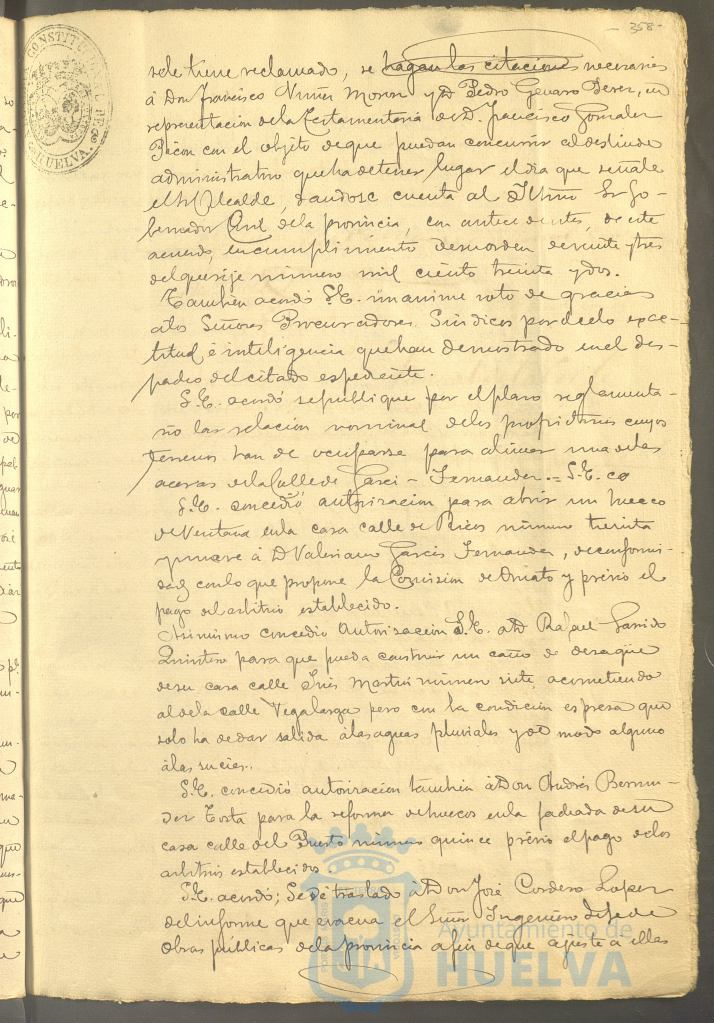 358-
CONSTITUCIONAL
HUELVA.
sele tiene reclamado, se hagan las citaciones necesarias
á Don Francisco Nuñez Moron y D. Pedro Genaro Perez, en
representacion de la Testamentaria de D. Francisco Gonzalez
Picon con el objeto de que puedan concurrir al deslinde
administrativo que ha de tener lugar el dia que señale
el Sr Alcalde, dandose cuenta al Iltmo Sr Go-
bernador Civil de la provincia, con antecedentes, de este
acuerdo, en cumplimiento de su orden de veinte y tres
del que rije número mil ciento treinta y dos.
Tambien acordó S.E. unanime voto de gracias
a los Señores Procuradores Sindicos por el celo exac-
titud é inteligencia que han demostrado en el des-
pacho del citado espediente.
S.E. acordó se publique por el plazo reglamenta-
rio las relacion nominal de los propietarios cuyos
terrenos han de ocuparse para alinear una de las
aceras de la Calle de Garci-Fernandez.= S.E. co
S.E. concedió autorizacion para abrir un hueco
de Ventana en la casa calle de Ricos número treinta
y nueve á D Valeriano Garcés Fernandez, de conformi-
dad con lo que propone la Comision de Ornato y prévio el
pago del arbitrio establecido.
Asimismo concedio autorizacion S.E. a D Rafael Garrido
Quintero para que pueda construir un caño de desagüe
de su casa calle Tres Martin número siete, acometiendo
al de la calle Vegalarga pero con la condicion espresa que
solo ha de dar salida á las aguas pluviales y de modo alguno
á las sucias.
S.E. concedió autorizacion tambien á Don Andrés Bermu-
dez Tosta para la reforma de huecos en la fachada de su
casa calle del Puerto número quince prévio el pago de los
arbitrios establecidos.
S.E. acordó; Se dé traslado á Don José Cordero Lopez
del informe que evacua el Señor Ingeniero Jefe de
Obras públicas de la provincia a fin de que ajuste a ellas
Ayuntamiento de
HUELVA